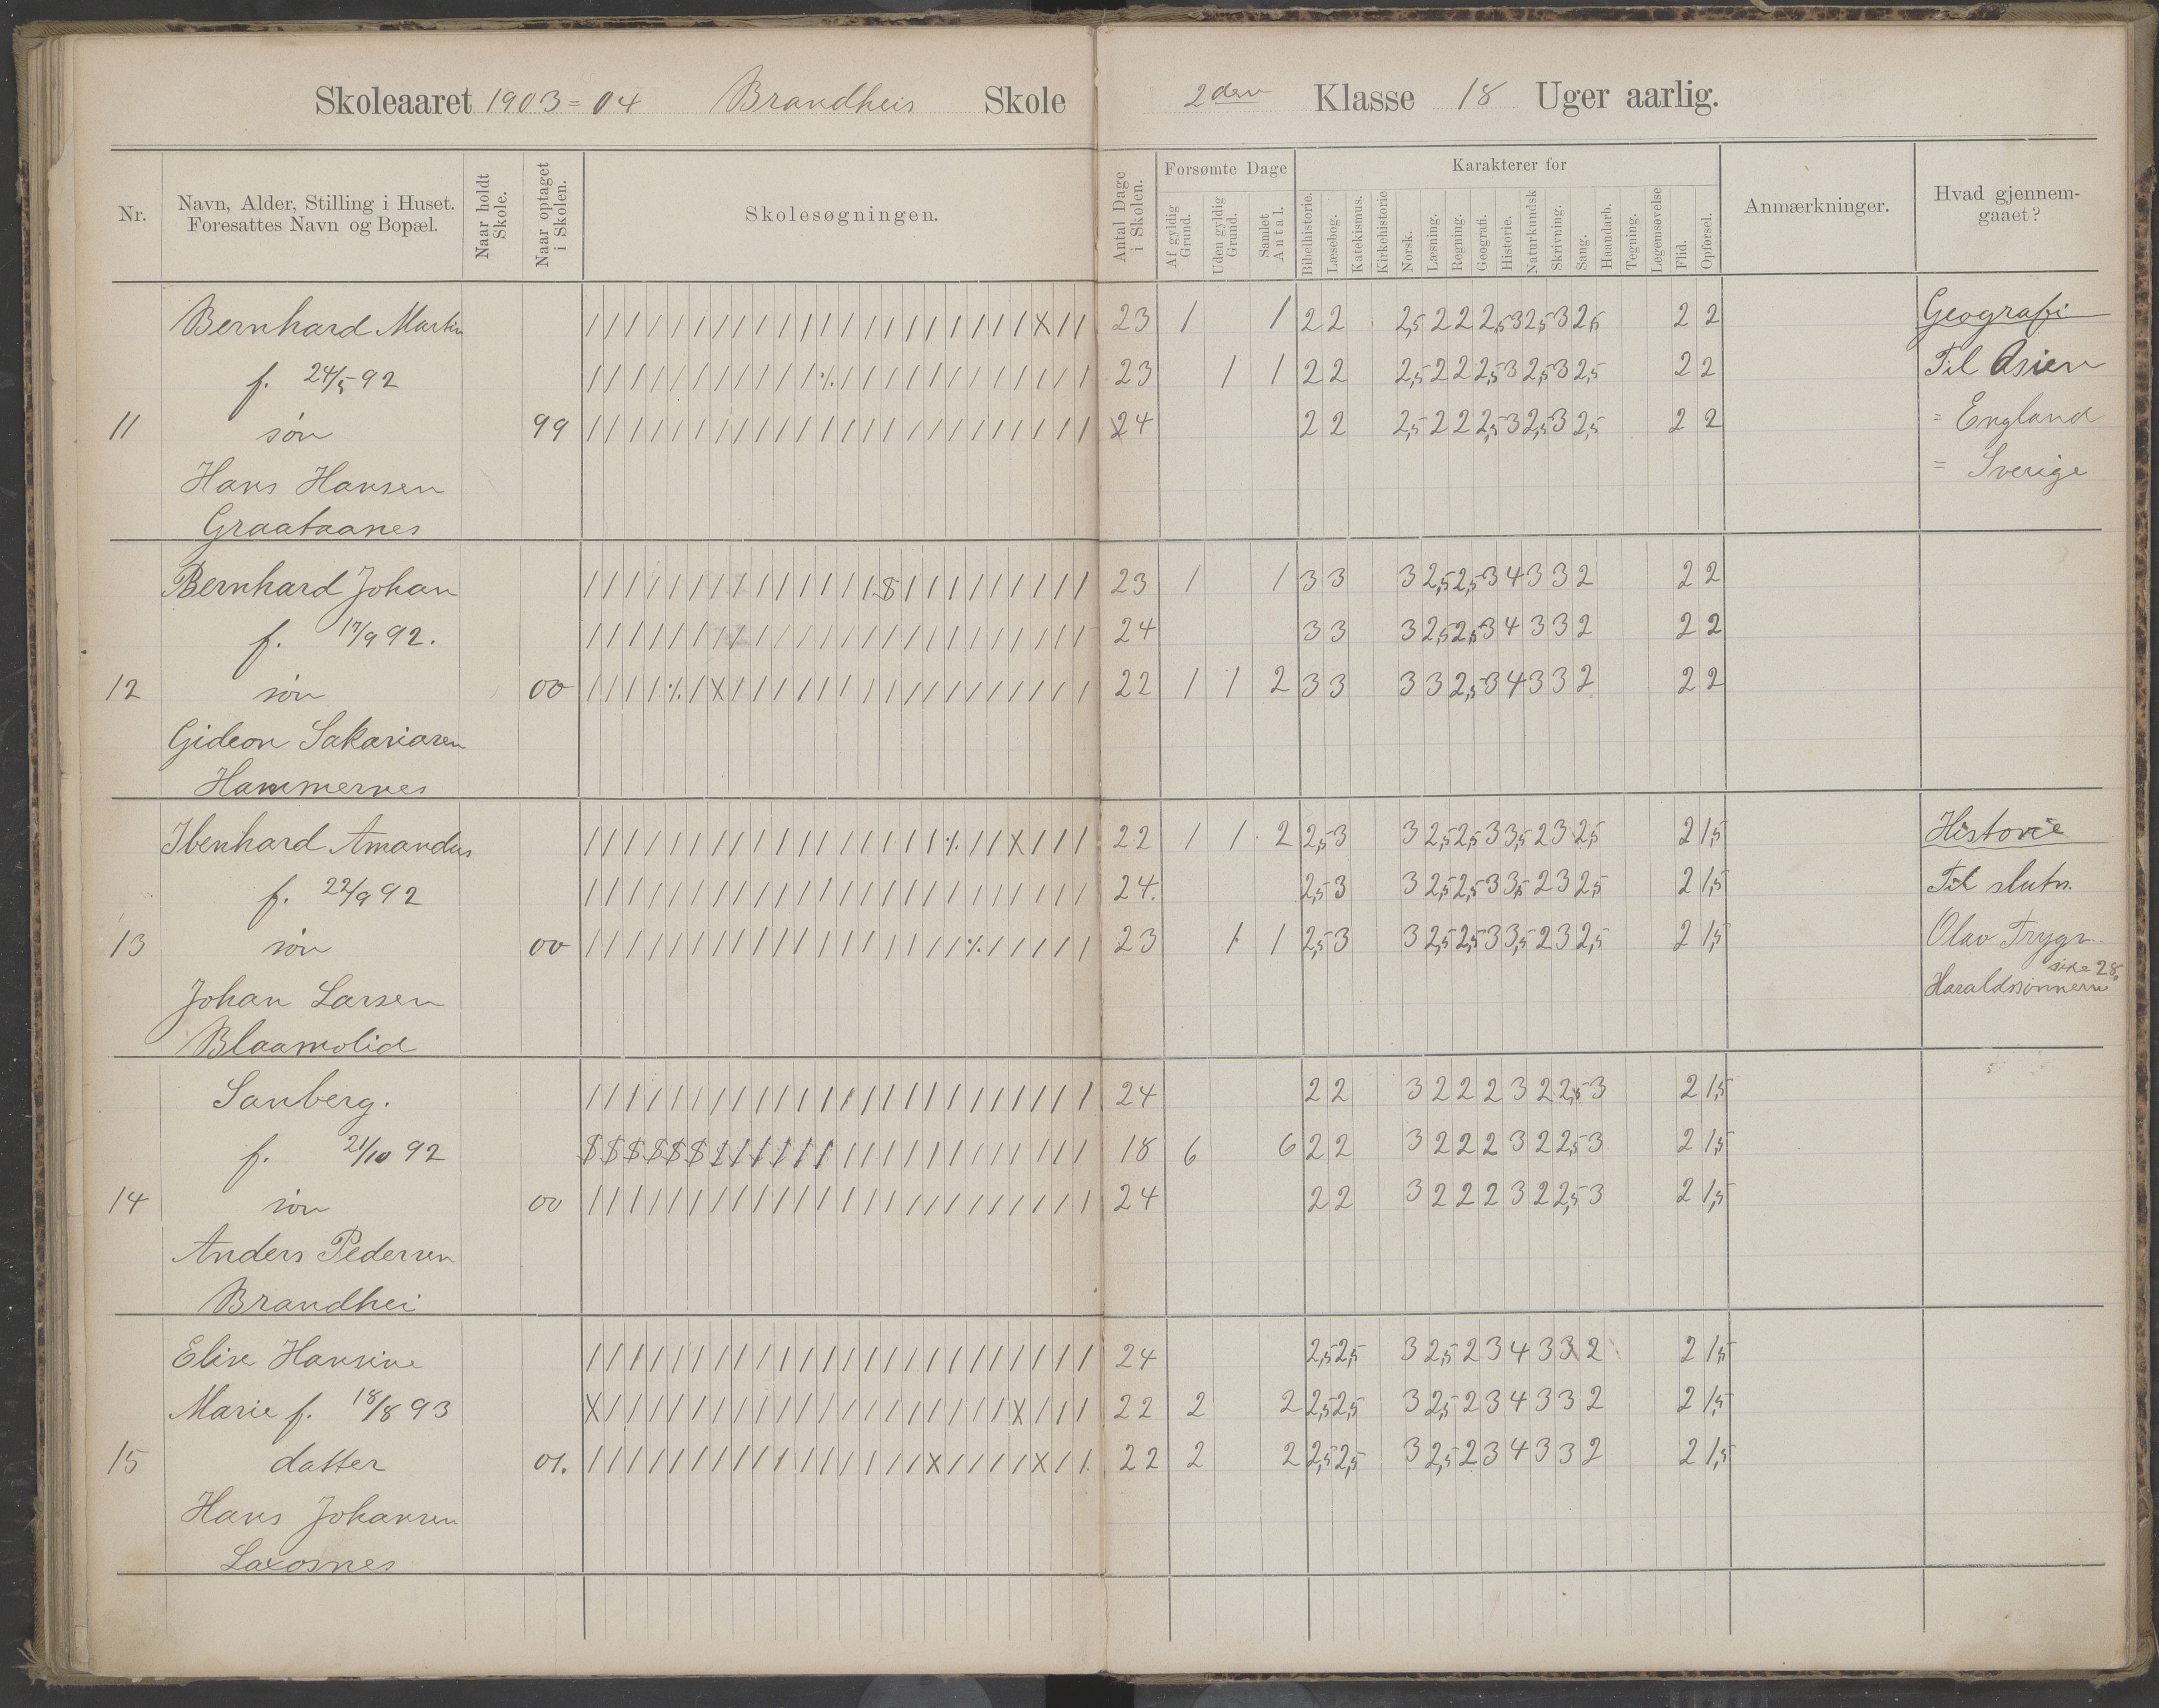 Skoleaaret 1903=04 Brandheis Skole 2den Klasse 18 Uger aarlig.
Nr.
Navn, Alder, Stilling i Huset.
Foresattes Navn og Bopæl.
Naar holdt
Skole.
Naar optaget
i Skolen.
Skolesøgningen.
Antal Dage
i Skolen.
Forsømte Dage
Af gyldig
Grund.
Uden gyldig
Grund.
Samlet
Antal.
Karakterer for
Bibelhistorie.
Læsebog.
Katekismus.
Kirkehistorie
Norsk.
Læsning.
Regning.
Geografi.
Historie.
Naturkundsk
Skrivning.
Sang.
Haandarb.
Tegning.
Legemsøvelse
Flid.
Opførsel.
Anmærkninger.
Hvad gjennem-
gaaet?
Bernhard Martin 23 1 1 2 2 2,5 2 2 2,5 3 2,5 3 2,5 2 2 Geografi
f. 24/5 92 23 1 1 2 2 2,5 2 2 2,5 3 2,5 3 2,5 2 2 Til Asien
11 søn 99 24 2 2 2,5 2 2 2,5 3 2,5 3 2,5 2 2 = England
Hans Hansen = Sverige
Graataanes
Bernhard Johan 23 1 1 3 3 3 2,5 2,5 3 4 3 3 2 2 2
f. 17/9 92. 24 3 3 3 2,5 2,5 3 4 3 3 2 2 2
12 søn 00 22 1 1 2 3 3 3 3 2,5 3 4 3 3 2 2 2
Gideon Sakariasen
Hammernes
Ibenhard Amandus 22 1 1 2 2,5 3 3 2,5 2,5 3 3,5 2 3 2,5 2 1,5 Historie
f. 22/9 92 24. 2,5 3 3 2,5 2,5 3 3,5 2 3 2,5 2 1,5 Til slutn.
13 søn 00 23 1 1 2,5 3 3 2,5 2,5 3 3,5 2 3 2,5 2 1,5 Olav Trygv.
side 28.
Johan Larsen Haraldssønnerne
Blaamolid
Sanberg. 24 2 2 3 2 2 2 3 2 2,5 3 2 1,5
f. 21/10 92 18 6 6 2 2 3 2 2 2 3 2 2,5 3 2 1,5
14 søn 00 24 2 2 3 2 2 2 3 2 2,5 3 2 1,5
Anders Pedersen
Brandhei
Elise Hansine 24 2,5 2,5 3 2,5 2 3 4 3 3 2 2 1,5
Marie f. 18/8 93 22 2 2 2,5 2,5 3 2,5 2 3 4 3 3 2 2 1,5
15 datter 01. 22 2 2 2,5 2,5 3 2,5 2 3 4 3 3 2 2 1,5
Hans Johansen
Laxosnes